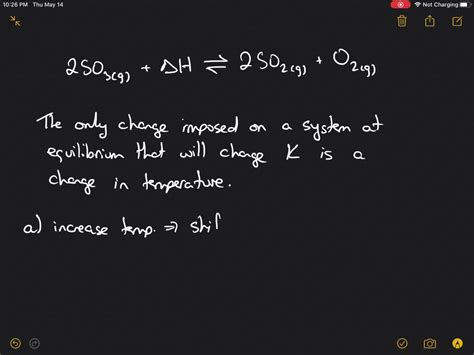 10:26 PM Thu May 14
Not Charging
2SO₃(g) + ΔH ⇌ 2SO₂(g) + O₂(g)
The only change imposed on a system at
equilibrium that will change K is a
change in temperature.
a) increase temp. ⇒ shif